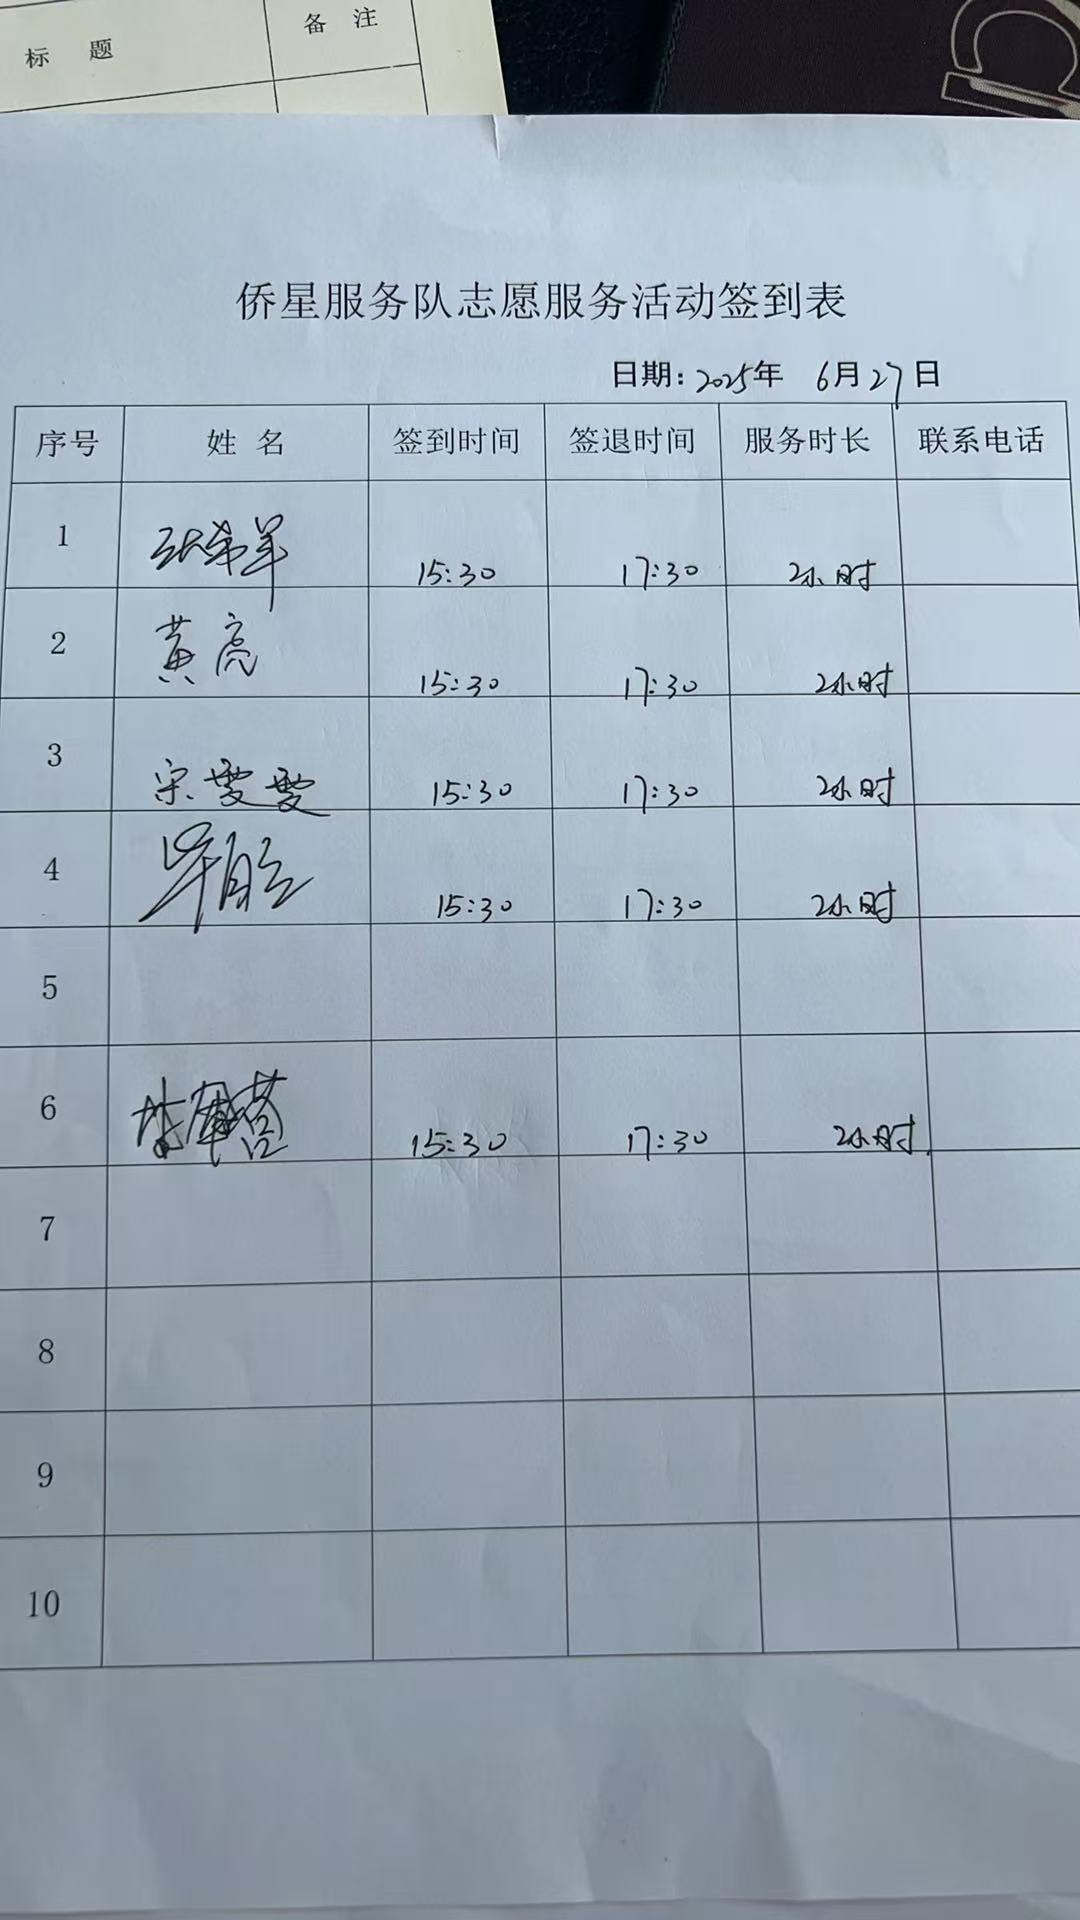 标 题 备 注
侨星服务队志愿服务活动签到表
日期：2025年 6月27日
序号 姓 名 签到时间 签退时间 服务时长 联系电话
1 15:30 17:30 2小时
2 黄亮 15:30 17:30 2小时
3 宋雯雯 15:30 17:30 2小时
4 15:30 17:30 2小时
5
6 15:30 17:30 2小时
7
8
9
10